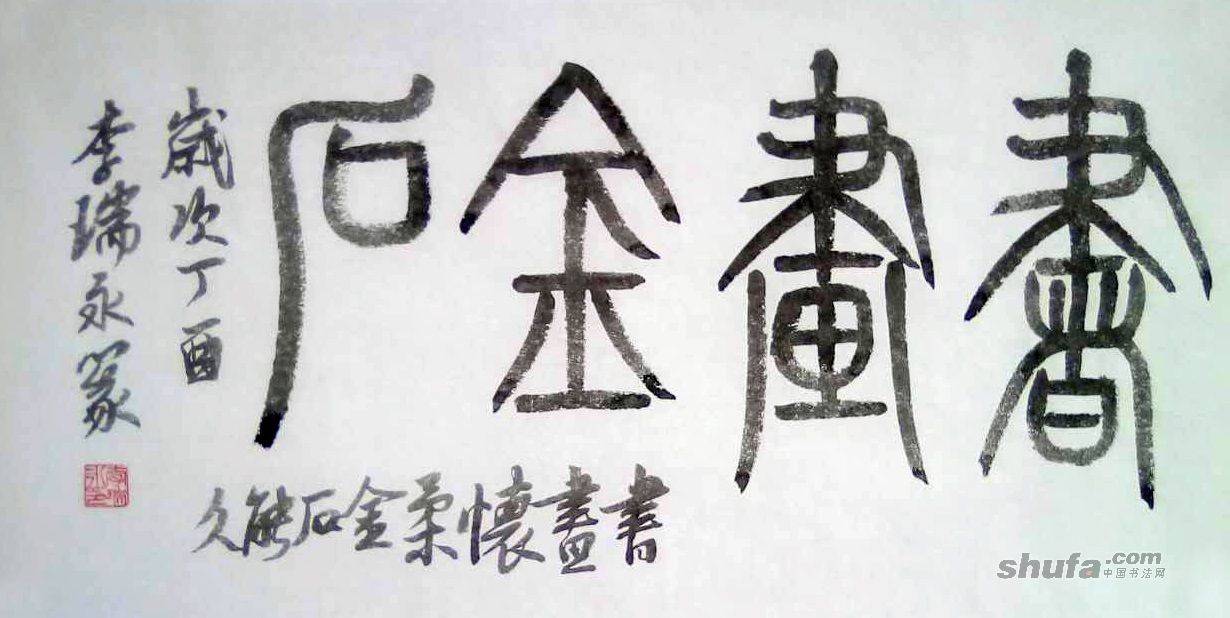 書畫金石
書畫懷柔金石能久
歲次丁酉
李瑞永篆
shufa.com
中国书法网